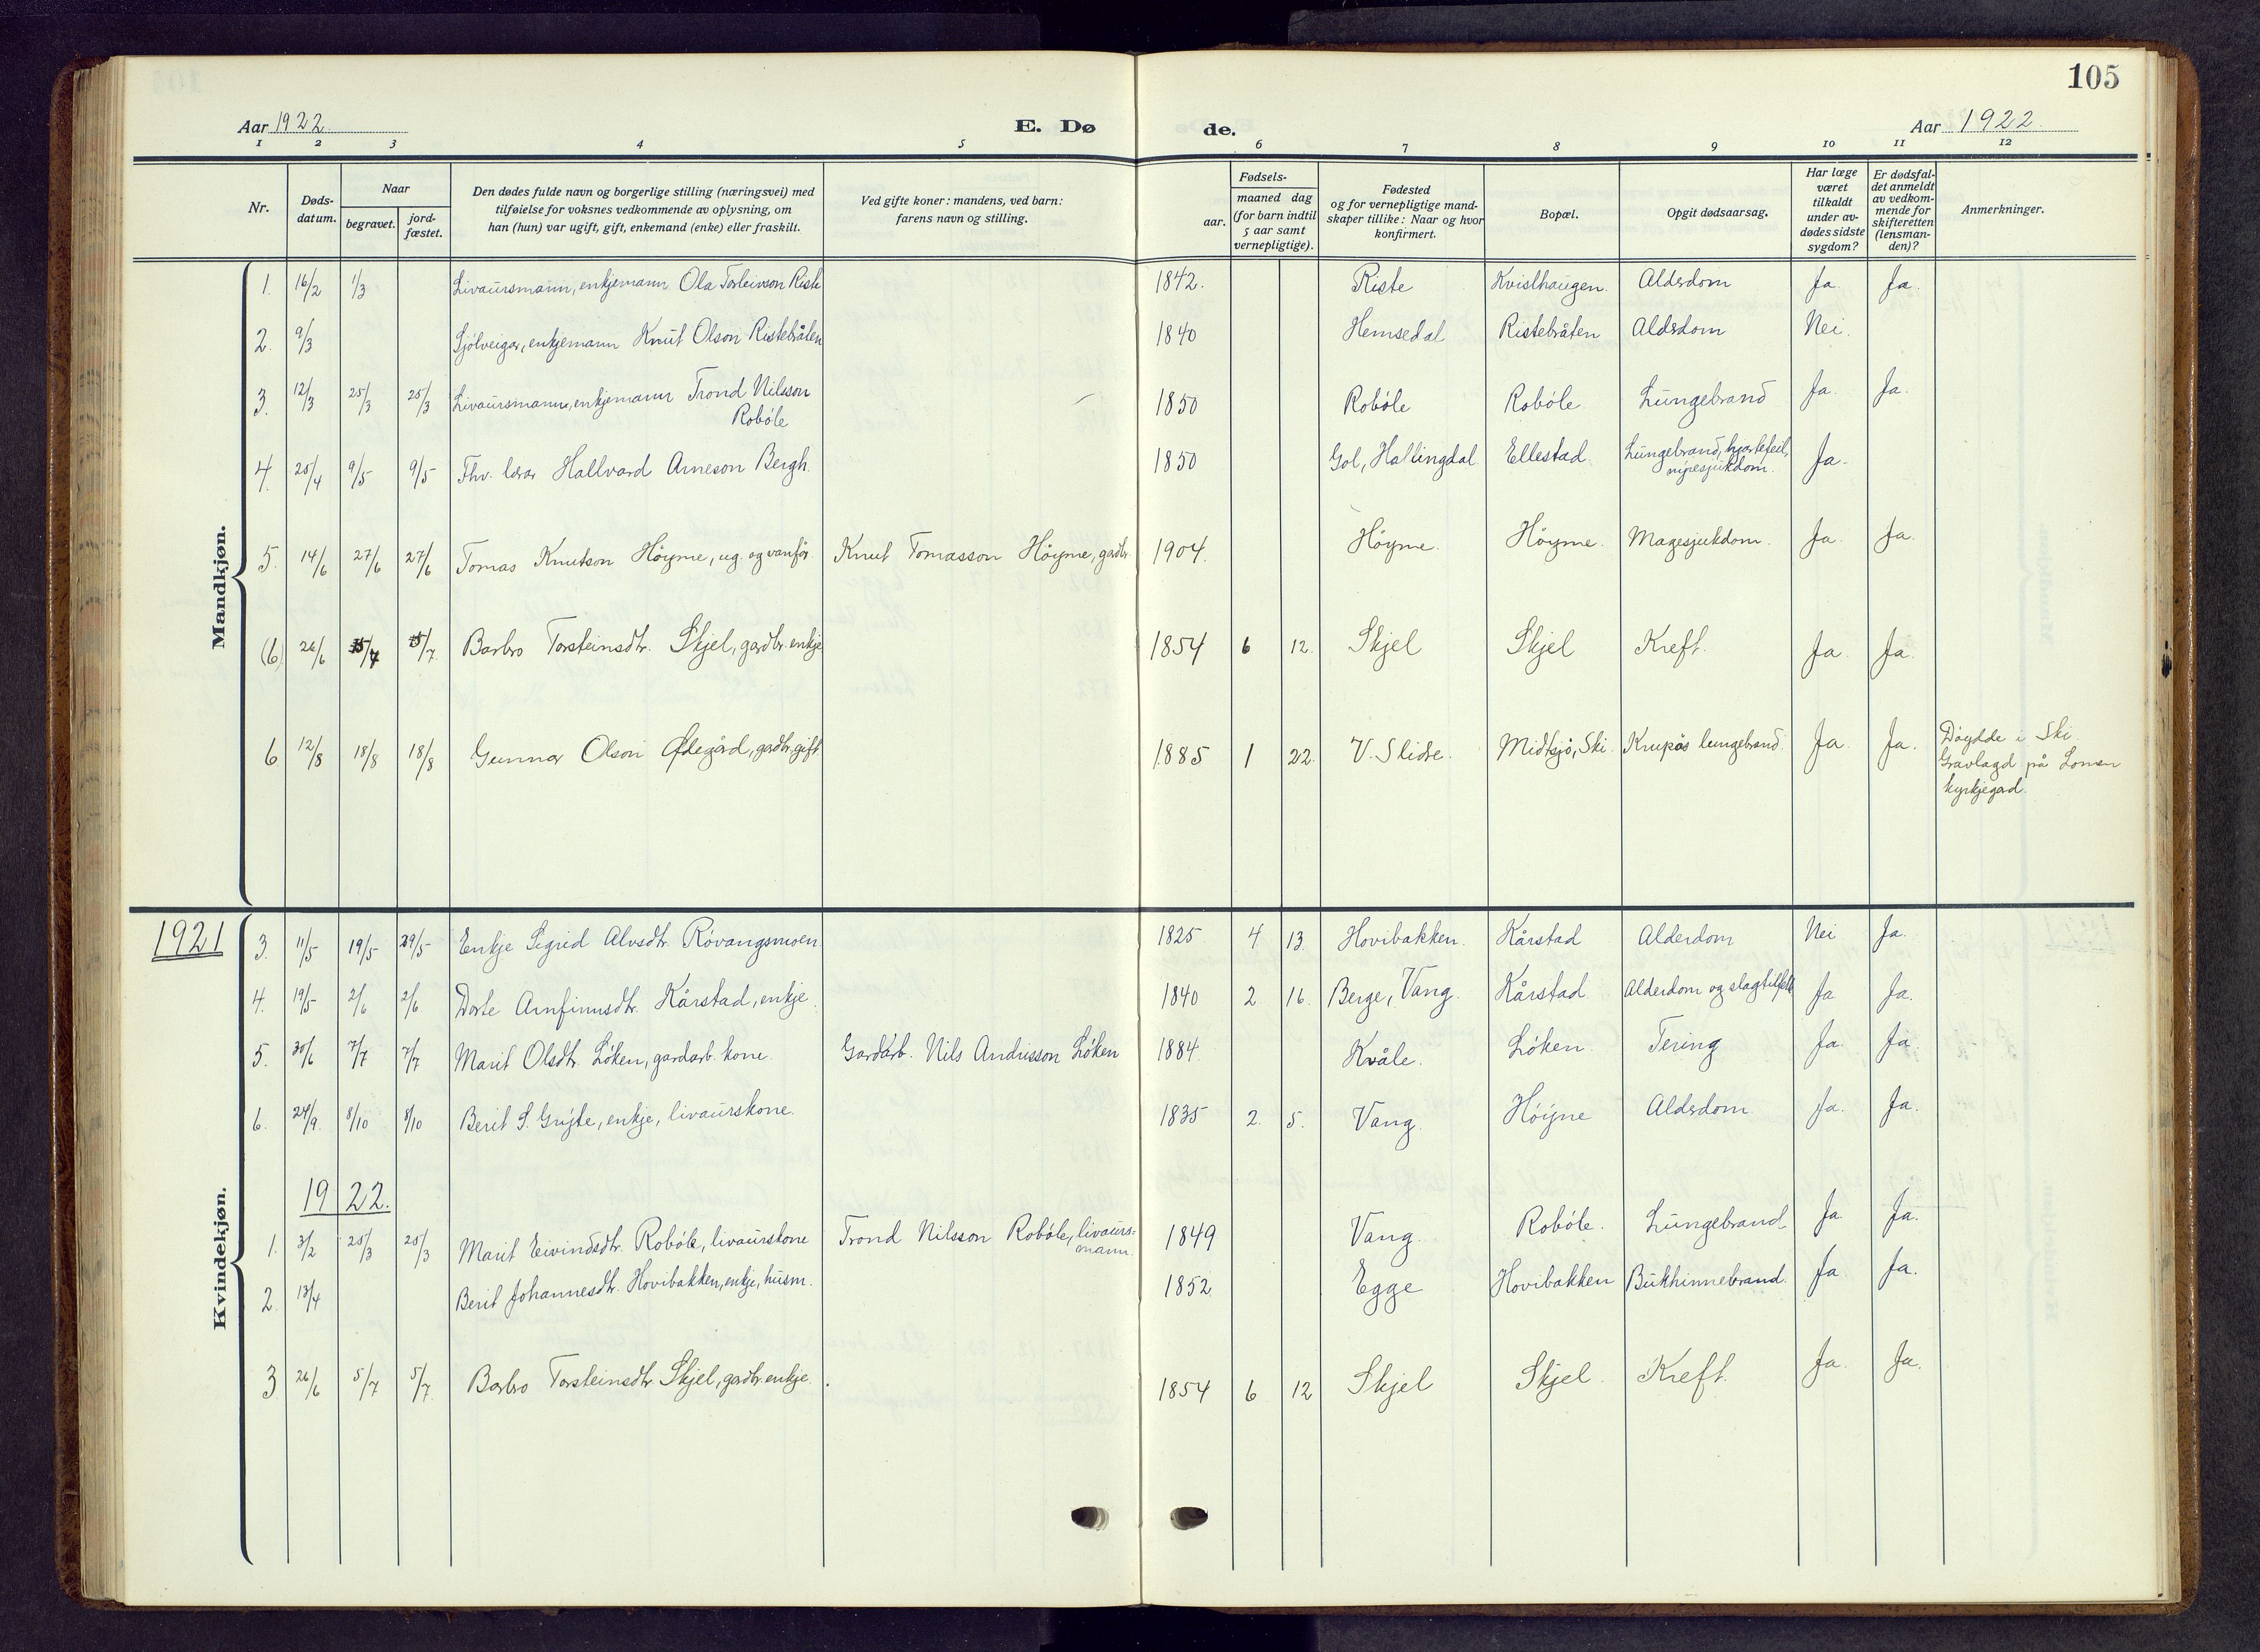 105
Aar 1922.
E. Dø
de.
Aar 1922.
1 2 3 4 5 6 7 8 9 10 11 12
Nr.
Døds-
datum.
Naar
begravet.
jord-
fæstet.
Den dødes fulde navn og borgerlige stilling (næringsvei) med
tilføielse for voksnes vedkommende av oplysning, om
han (hun) var ugift, gift, enkemand (enke) eller fraskilt.
Ved gifte koner: mandens, ved barn:
farens navn og stilling.
Fødsels-
aar.
maaned dag
(for barn indtil
5 aar samt
vernepligtige).
Fødested
og for vernepligtige mand-
skaper tillike: Naar og hvor
konfirmert.
Bopæl.
Opgit dødsaarsag.
Har læge
været
tilkaldt
under av-
dødes sidste
sygdom?
Er dødsfal-
det anmeldt
av vedkom-
mende for
skifteretten
(lensman-
den)?
Anmerkninger.
Mandkjøn.
1. 16/2 1/3 Livaursmann, enkjemann Ola Torleivson Riste 1842. Riste Kvislhaugen. Alderdom Ja. Ja.
2. 9/3 Sjølveigar, enkjemann Knut Olson Ristebråten 1840 Hemsedal Ristebråten Alderdom Nei.
3. 12/3 25/3 25/3 Livaursmann, enkjemann Trond Nilsson
Robøle 1850 Robøle Robøle Lungebrand Ja. Ja.
4. 25/4 9/5 9/5 Fhv. lærar Hallvard Arneson Bergh. 1850 Gol, Hallingdal Ellestad. Lungebrand, hjartefeil,
nyresjukdom. Ja.
5. 14/6 27/6 27/6 Tomas Knutson Høyme, ug. og vanfør. Knut Tomasson Høyme, gardbr. 1904. Høyme. Høyme. Magesjukdom. Ja. Ja.
(6) 26/6 5/7 5/7 Barbro Torsteinsdtr. Skjel, gardbr. enkje 1854 6 12. Skjel Skjel Kreft. Ja. Ja.
6. 12/8 18/8 18/8 Gunnar Olson Ødegård, gardbr, gift 1885 1 22. V. Slidre. Midtsjø, Ski. Krupøs lungebrand. Ja. Ja. Døydde i Ski.
Gravlagd på Lomen
kyrkjegard.
Kvindekjøn.
1921
3. 11/5 19/5 29/5 Enkje Sigrid Alvsdtr. Røvangsmoen 1825 4 13. Hovibakken. Kårstad Alderdom Nei Ja.
4. 19/5 2/6 2/6 Dorte Arnfinnsdtr. Kårstad, enkje. 1840 2 16. Berge, Vang. Kårstad Alderdom og slagtilfelle Ja Ja.
5. 30/6 7/7 7/7 Marit Olsdtr. Løken, gardarb. kone. Gardarb. Nils Andrisson Løken 1884. Kvåle. Løken. Tering Ja. Ja.
6. 24/9. 8/10 8/10 Berit S. enkje, livaurskone. 1835 2. 5. Vang. Høyne Alderdom. Ja. Ja.
1922.
1. 3/2 25/3 25/3 Marit Eivindsdtr. Robøle, livaurskone Trond Nilsson Robøle, livaurs-
mann. 1849 Vang. Robøle. Lungebrand Ja. Ja.
2. 13/4 Berit Johannesdtr. Hovibakken, enkje, husm. 1852 Egge Hovibakken Bukhinnebrand. Ja. Ja.
3 26/6 5/7 5/7. Barbro Torsteinsdtr. Skjel, gardbr. enkje. 1854 6 12 Skjel Skjel. Kreft. Ja. Ja.